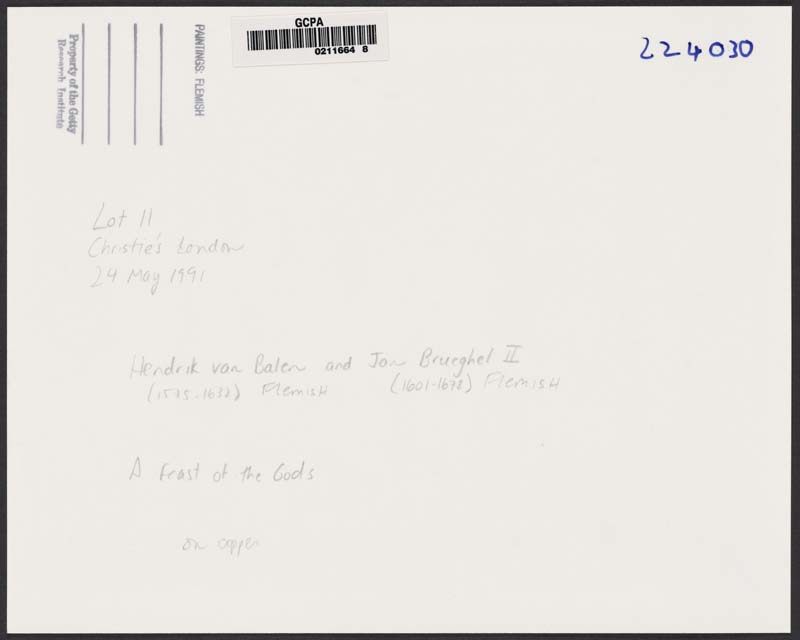 Property of the Getty
Research Institute
PAINTINGS: FLEMISH
GCPA
0211664 8
224030
Lot 11
Christie's London
24 May 1991
Hendrik van Balen and Jan Brueghel II
(1575-1632) Flemish (1601-1678) Flemish
A Feast of the Gods
on copper